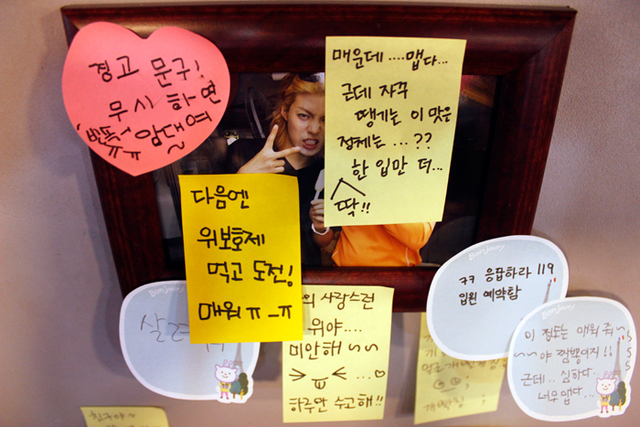 경고 문구!
무시 하면
암대여
매운데 .... 맵다...
근데 자꾸
땡기는 이 맛은
정체는 ... ??
한 입만 더...
딱!!
다음엔
위보호제
먹고 도전!
매워 ㅠ_ㅠ
의 사랑스런
위야....
미안해 ~~
하루만 수고해!!
ㅋㅋ 응급하라 119
입원 예약함
이 정도는 매워 줘
~~ 야 짬뽕이지!!
근데.. 심하다...
너무 맵다...
살려